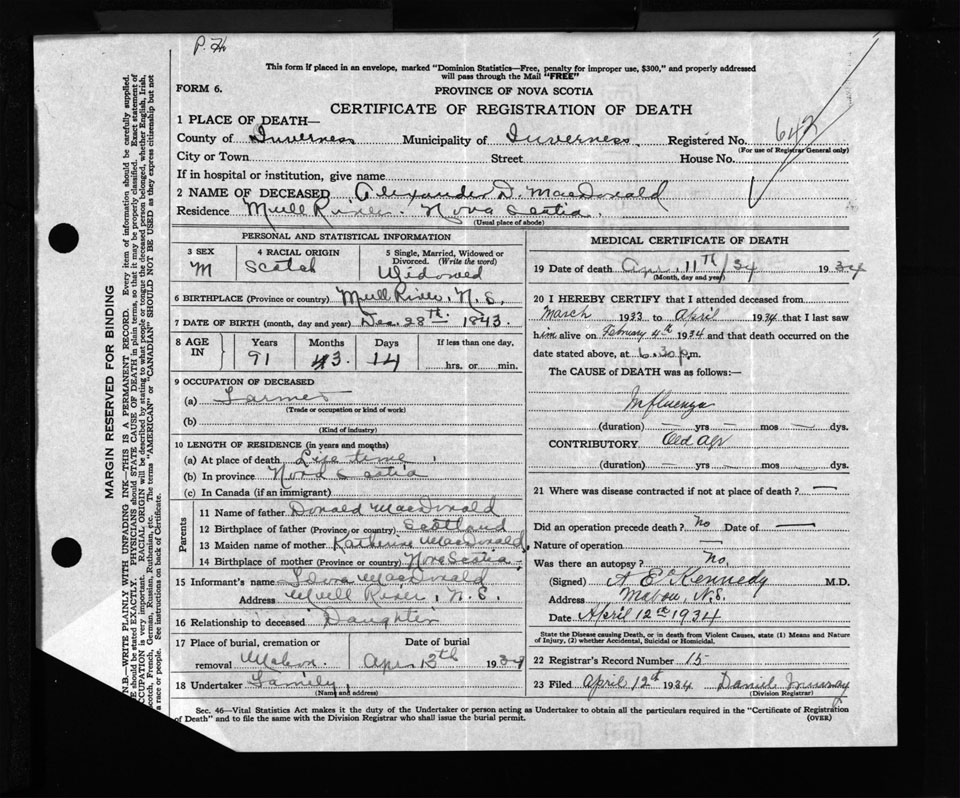 P.
This form if placed in an envelope, marked "Dominion Statistics—Free, penalty for improper use, $300," and properly addressed
will pass through the Mail "FREE"
FORM 6.
PROVINCE OF NOVA SCOTIA
CERTIFICATE OF REGISTRATION OF DEATH
1 PLACE OF DEATH—
County of Inverness Municipality of Inverness Registered No. 642
(For use of Registrar General only)
City or Town Street House No.
If in hospital or institution, give name
2 NAME OF DECEASED Alexander D. MacDonald
Residence Mull River. Nova Scotia.
(Usual place of abode)
PERSONAL AND STATISTICAL INFORMATION
3 SEX 4 RACIAL ORIGIN 5 Single, Married, Widowed or
Divorced. (Write the word)
M Scotch Widowed
6 BIRTHPLACE (Province or country) Mull River, N.S.
7 DATE OF BIRTH (month, day and year) Dec. 28th. 1843.
8 AGE IN Years Months Days If less than one day,
91 3 14 hrs. or min.
9 OCCUPATION OF DECEASED
(a) Farmer
(Trade or occupation or kind of work)
(b)
(Kind of industry)
10 LENGTH OF RESIDENCE (in years and months)
(a) At place of death Life time
(b) In province Nova Scotia
(c) In Canada (if an immigrant)
Parents
11 Name of father Donald MacDonald
12 Birthplace of father (Province or country) Scotland
13 Maiden name of mother Katherine MacDonald
14 Birthplace of mother (Province or country) Nova Scotia
15 Informant's name MacDonald
Address Mull River, N.S.
16 Relationship to deceased Daughter
17 Place of burial, cremation or Date of burial
removal Mabou. Apr. 13th 1934
18 Undertaker Family
(Name and address)
MEDICAL CERTIFICATE OF DEATH
19 Date of death Apr. 11th/34 1934
(Month, day and year)
20 I HEREBY CERTIFY that I attended deceased from
March 1933 to April 1934 that I last saw
him alive on February 4th 1934 and that death occurred on the
date stated above, at 6.30 p.m.
The CAUSE of DEATH was as follows:—
Influenza
(duration) — yrs — mos — dys.
CONTRIBUTORY Old Age
(duration) — yrs — mos — dys.
21 Where was disease contracted if not at place of death? —
Did an operation precede death? No Date of —
Nature of operation —
Was there an autopsy? No.
(Signed) A E Kennedy M.D.
Address Mabou, N.S.
Date April 12th 1934
State the Disease causing Death, or in death from Violent Causes, state (1) Means and Nature
of Injury, (2) whether Accidental, Suicidal or Homicidal.
22 Registrar's Record Number 15
23 Filed April 12th 1934 Daniel Murray
(Division Registrar)
Sec. 46—Vital Statistics Act makes it the duty of the Undertaker or person acting as Undertaker to obtain all the particulars required in the "Certificate of Registration
of Death" and to file the same with the Division Registrar who shall issue the burial permit. (OVER)
MARGIN RESERVED FOR BINDING
N.B.—WRITE PLAINLY WITH UNFADING INK—THIS IS A PERMANENT RECORD. Every item of information should be carefully supplied.
should be stated EXACTLY. PHYSICIANS should STATE CAUSE OF DEATH in plain terms, so that it may be properly classified. Exact statement of
OCCUPATION is very important. RACIAL ORIGIN will be described by stating to what people or tongue the deceased person belonged, whether English, Irish,
Scotch, French, German, Russian, Ruthenian, etc. The terms "AMERICAN" or "CANADIAN" SHOULD NOT BE USED as they express citizenship but not
a race or people. See instructions on back of Certificate.